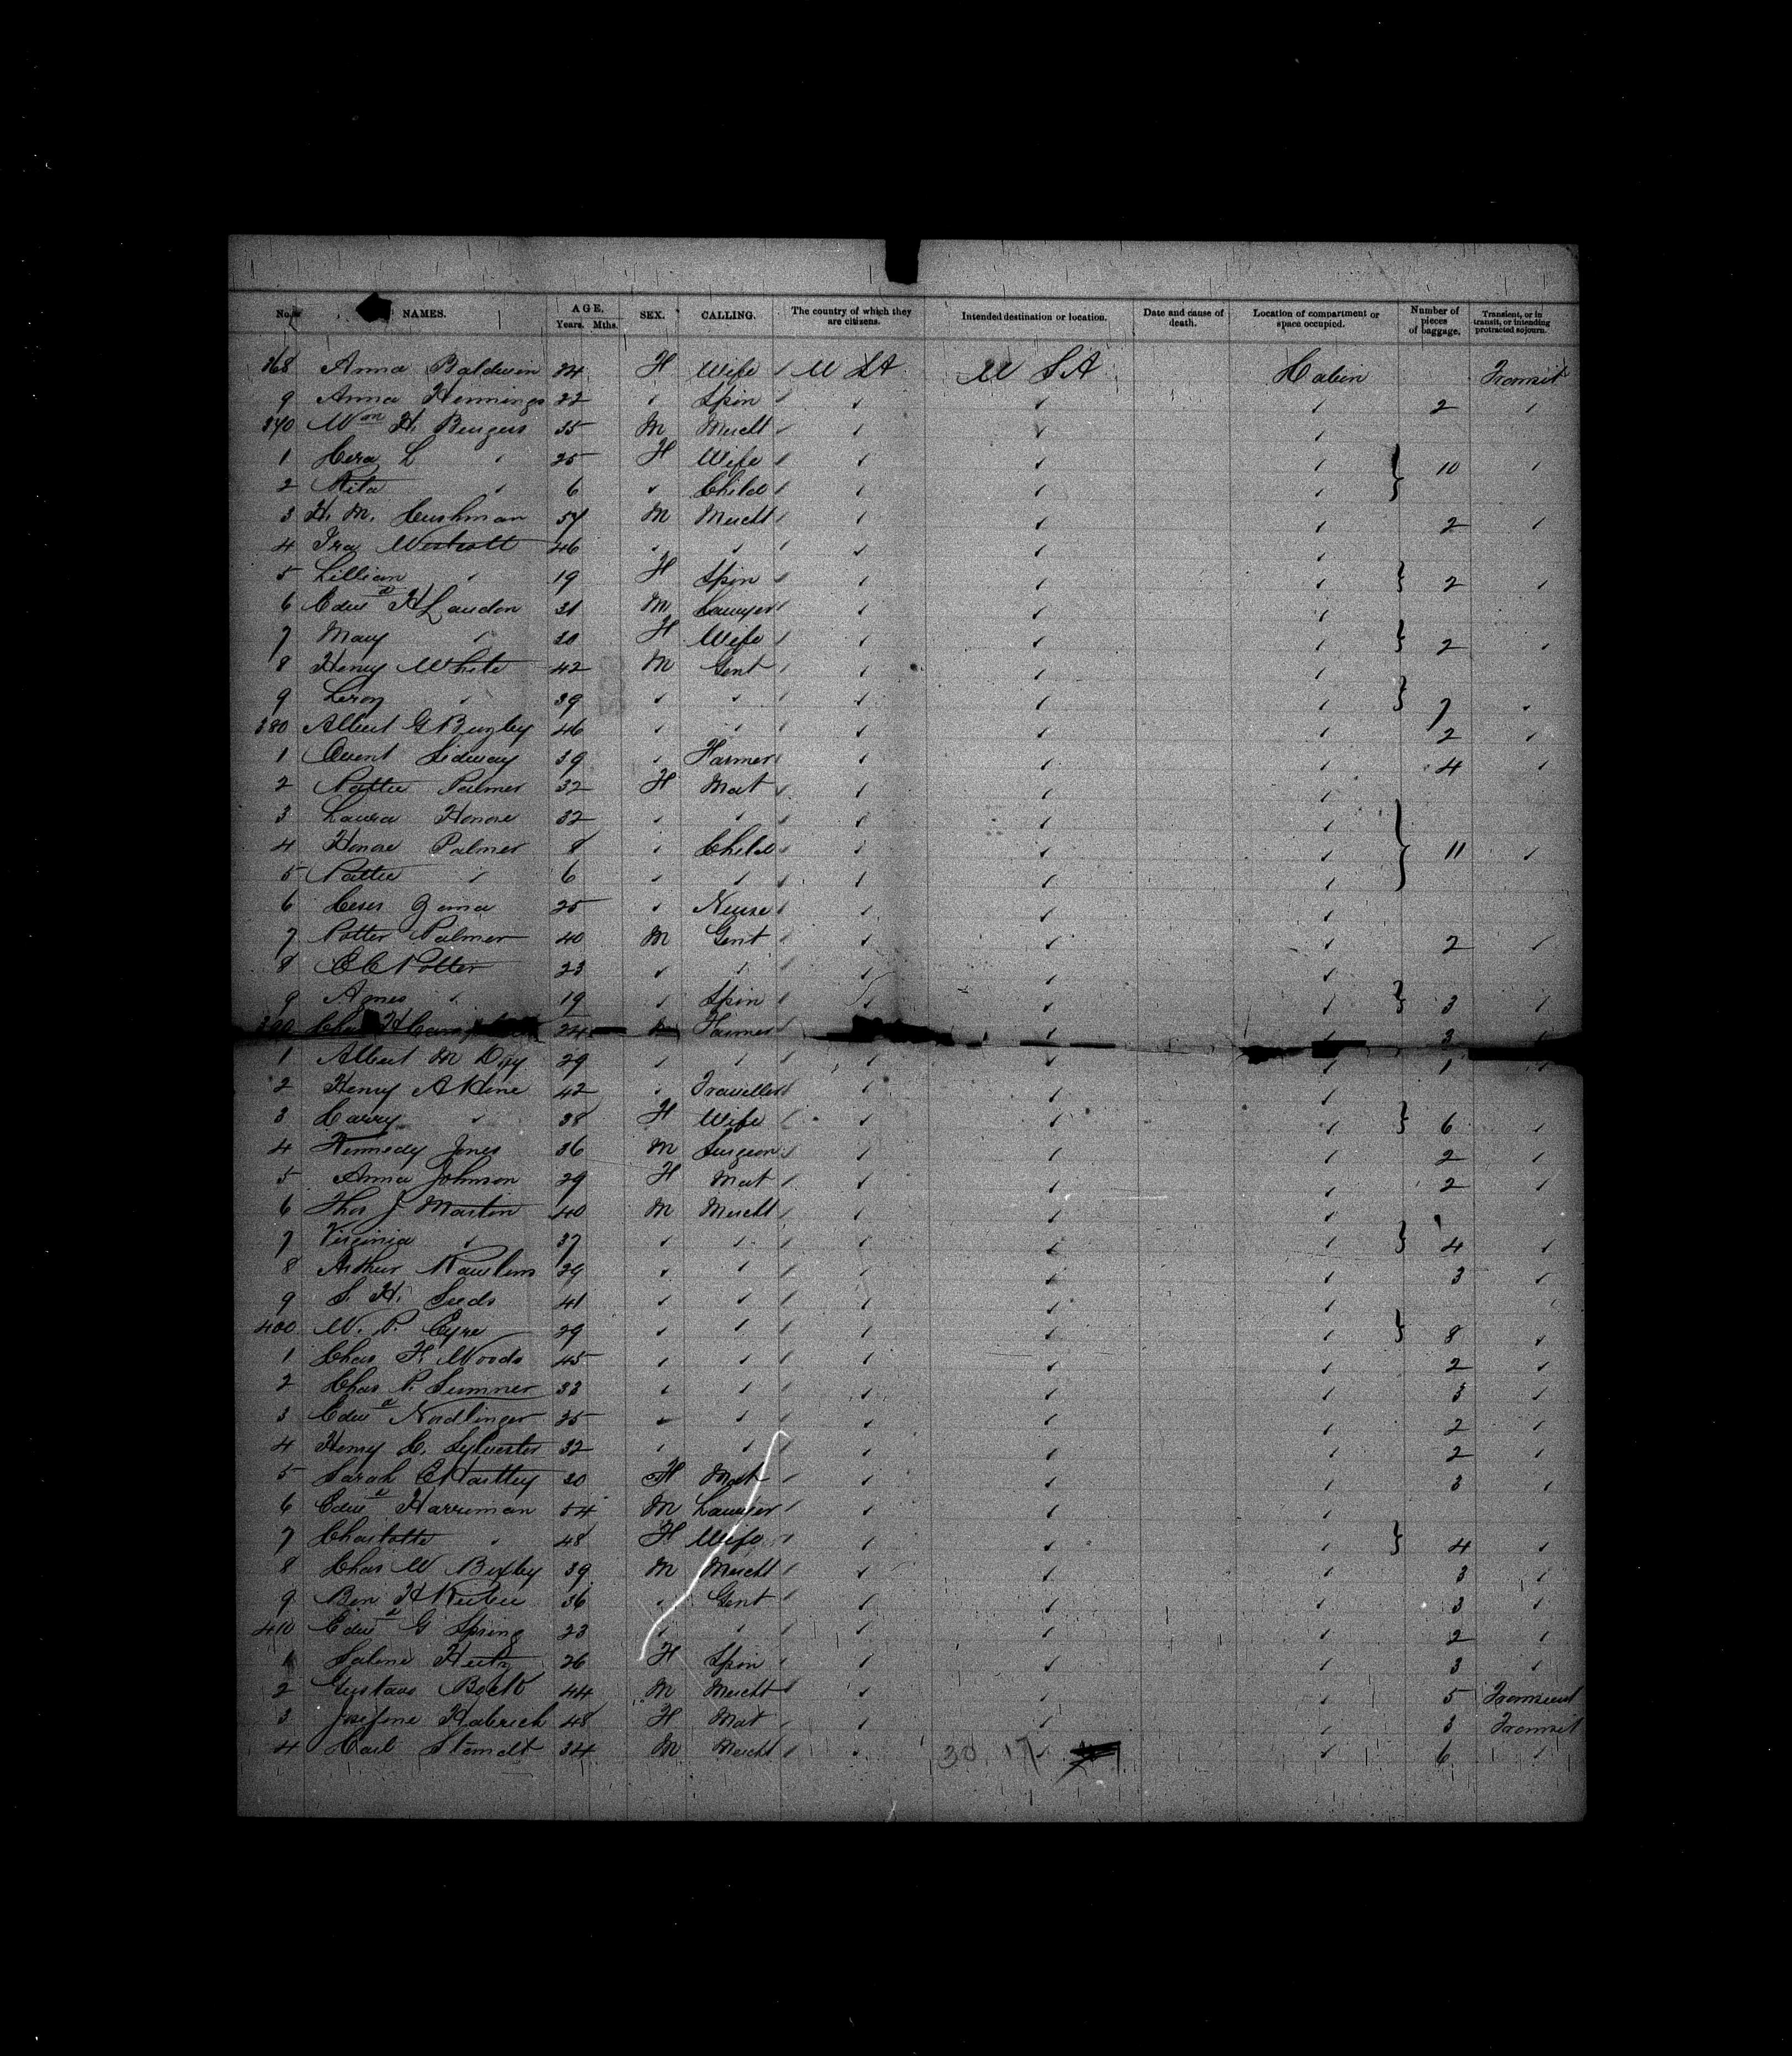 No. NAMES. AGE. Years. Mths. SEX. CALLING. The country of which they are citizens. Intended destination or location. Date and cause of death. Location of compartment or space occupied. Number of pieces of baggage. Transient, or in transit, or intending protracted sojourn.
368 Anna Baldwin 34 F Wife U S A U S A Cabin Transit
9 Anna Hennings 22 " Spin " " " 2 "
370 Wm H. 35 M Mercht " " "
1 L " 25 F Wife " " " } 10 "
2 Rita " 6 " Child " " "
3 H. M. Cushman 57 M Mercht " " " 2 "
4 Ira Westcott 46 " " " " "
5 Lillian " 19 F Spin " " " } 2 "
6 Edwd H Landon 31 M Lawyer " " "
7 Mary " 30 F Wife " " " } 2 "
8 Henry White 42 M Gent " " "
9 Leroy " 39 " " " " " } 7 "
380 Albert G 46 " " " " " 2 "
1 Sidway 39 " Farmer " " " 4 "
2 Palmer 32 F Mat " " "
3 Laura Honore 32 " " " " "
4 Honore Palmer 8 " Child " " " } 11 "
5 " 6 " " " " "
6 25 " Nurse " " "
7 Potter Palmer 40 M Gent " " " 2 "
8 E C Potter 23 " " " " "
9 Agnes " 19 " Spin " " " } 3 "
390 Chas H 24 M Farmer " " 3
1 Albert M 29 " " " " " 1 "
2 Henry A 42 " Traveller " " "
3 Carry " 38 F Wife " " " } 6 "
4 Kennedy Jones 36 M Surgeon " " " 2 "
5 Anna Johnson 29 F Mat " " " 2 "
6 Thos J. Martin 40 M Mercht " " "
7 Virginia " 37 " " " " " } 4 "
8 Arthur Rawlins 29 " " " " " 3 "
9 S. H. Seeds 41 " " " " "
400 W. P. Eyre 29 " " " " " } 8 "
1 Chas F. Woods 45 " " " " " 2 "
2 Chas P. Sumner 33 " " " " " 3 "
3 Edwd Nordlinger 25 " " " " " 2 "
4 Henry C. Sylvester 32 " " " " " 2 "
5 Sarah E Hartley 30 F Mat " " " 3 "
6 Edwd Harriman 54 M Lawyer " " "
7 Charlotte " 48 F Wife " " " } 4 "
8 Chas W Bixby 39 M Mercht " " " 3 "
9 Ben H 36 " Gent " " " 3 "
410 Edwd G Spring 23 " " " " " 2 "
1 26 F Spin " " " 3 "
2 Gustave 44 M Mercht " " " 5 Transient
3 Josefine 48 F Mat " " " 3 Transit
4 Carl 34 M Mercht " " " 6 "
30 17